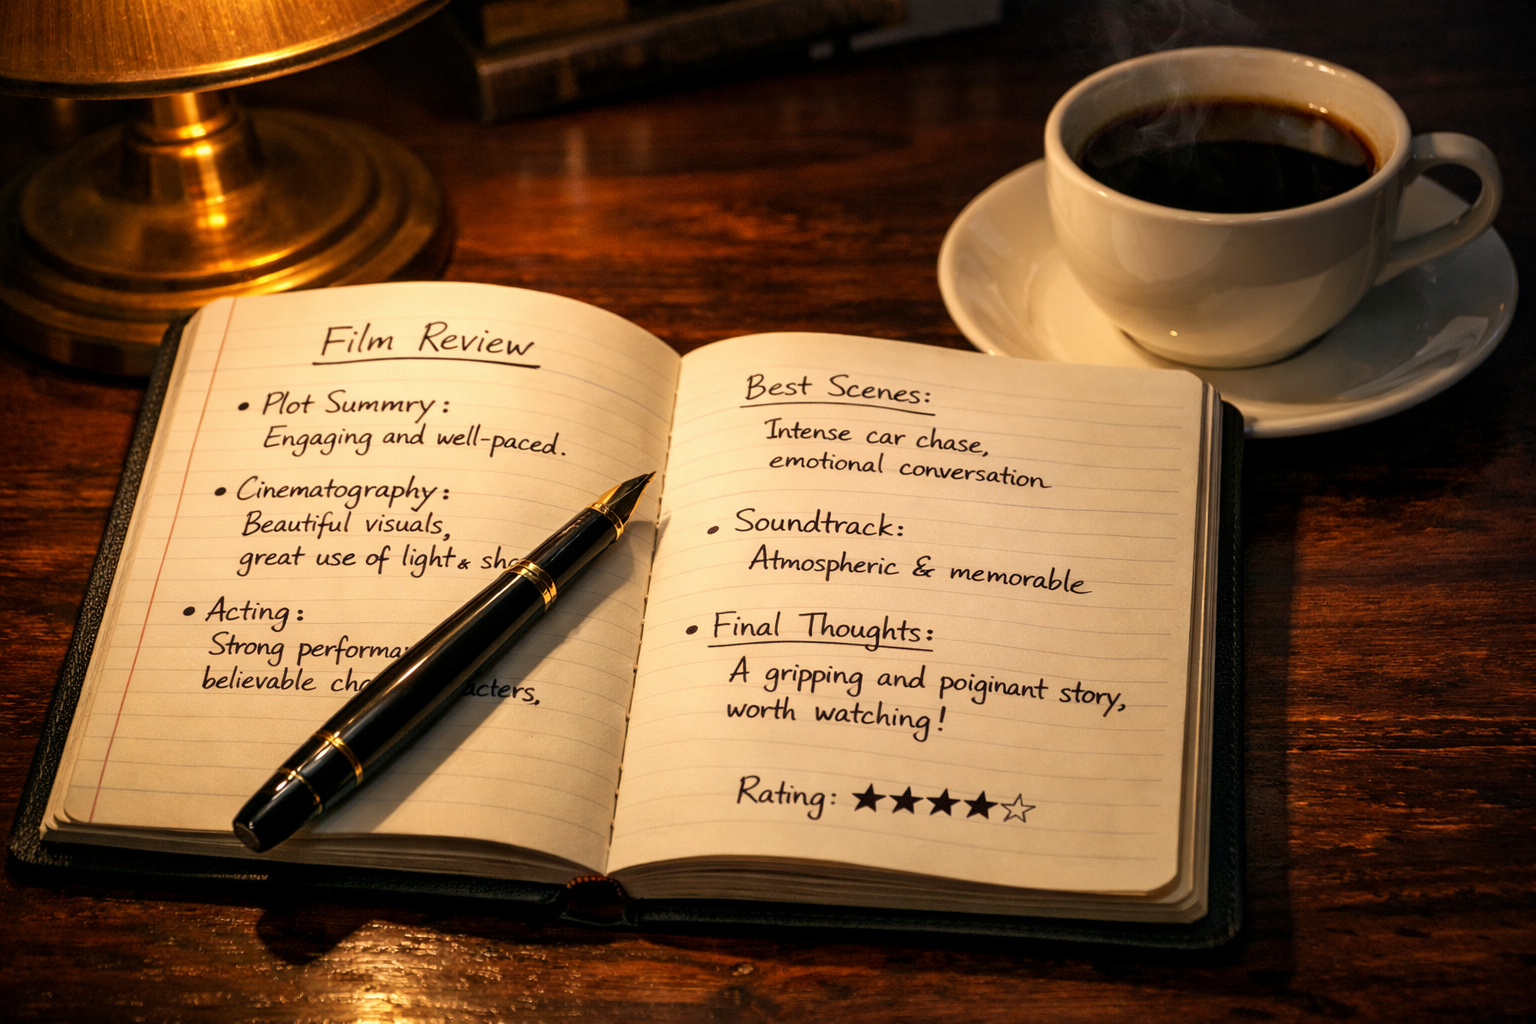 Film Review
• Plot Summry:
Engaging and well-paced.
• Cinematography:
Beautiful visuals,
great use of light &
• Acting:
Strong
believable
Best Scenes:
Intense car chase,
emotional conversation
• Soundtrack:
Atmospheric & memorable
• Final Thoughts:
A gripping and poiginant story,
worth watching!
Rating: ★★★★☆